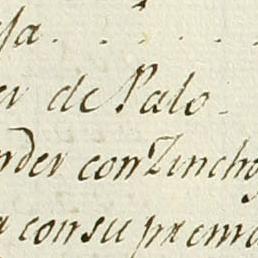 sa. . . . .
er de Palo.
nder con Zincho
a con su prema